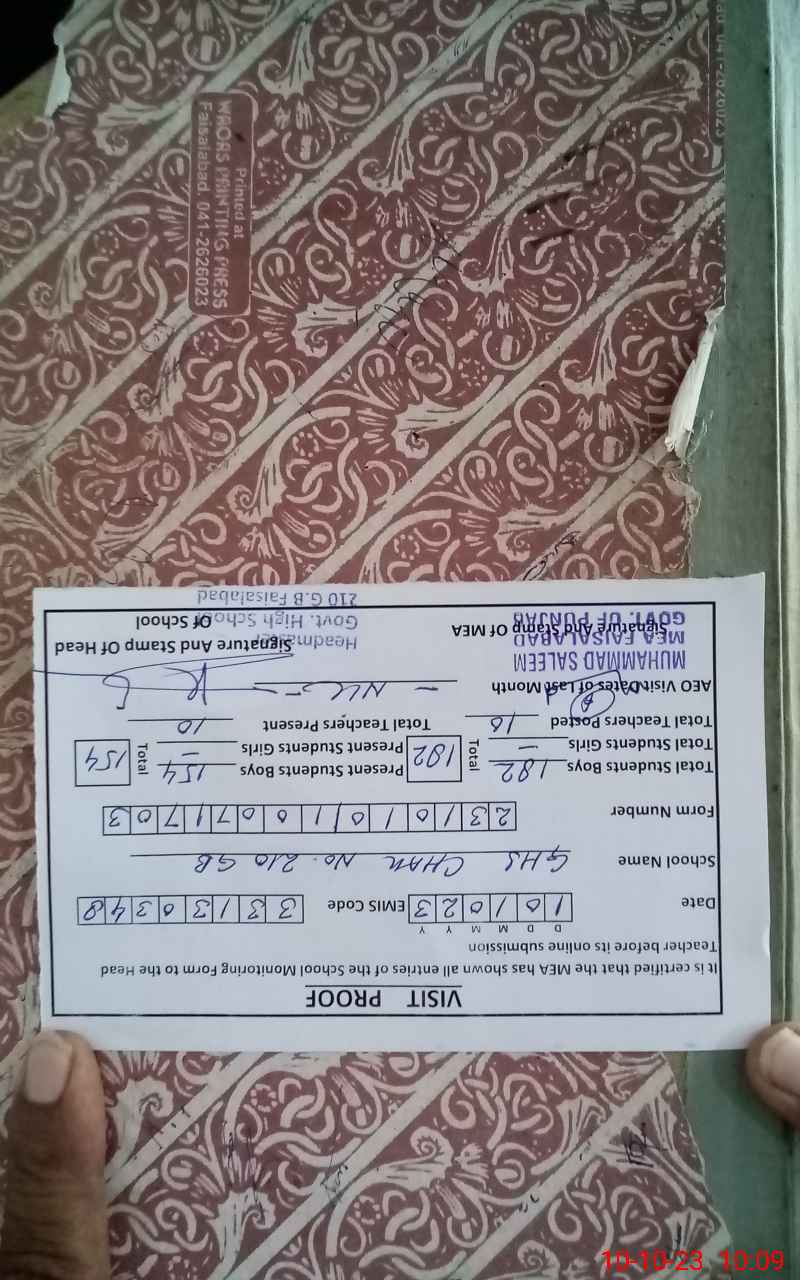 VISIT PROOF
It is certified that the MEA has shown all entries of the School Monitoring Form to the Head
Teacher before its online submission
D D M M Y Y
Date 101023 EMIS Code 33130348
School Name GHS CHAK No. 210 GB
Form Number
Total Students Boys 182 Total 182 Present Students Boys 154 Total 154
Total Students Girls — Present Students Girls —
Total Teachers Posted 10 Total Teachers Present 10
AEO Visit Dates of Last Month — NIL —
MUHAMMAD SALEEM
MEA FAISALABAD
GOVT. OF PUNJAB
Signature And Stamp Of MEA
Signature And Stamp Of Head
Of School
Headmaster
Govt. High School
210 G.B Faisalabad
Printed at
WAQAS PRINTING PRESS
Faisalabad. 041-2626023
10-10-23 10:09